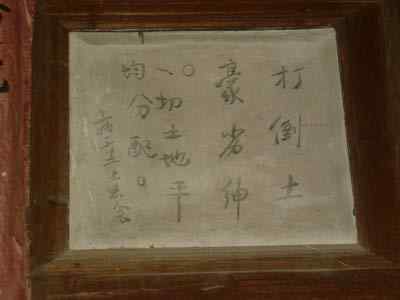 打倒土
豪劣绅
。一切土地平
均分配。